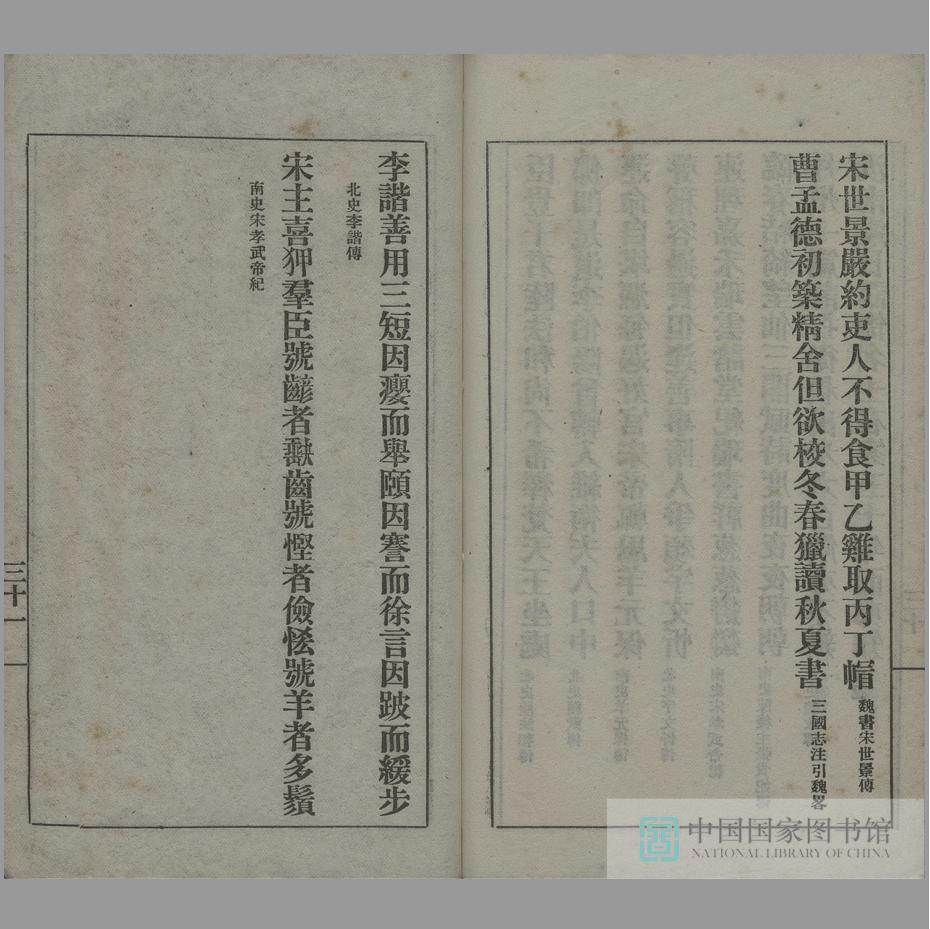 宋世景嚴約吏人不得食甲乙雞取丙丁帽
魏書宋世景傳
曹孟德初築精舍但欲校冬春獵讀秋夏書
三國志注引魏畧
李諧善用三短因癭而舉頤因謇而徐言因跛而緩步
北史李諧傳
宋主喜狎羣臣號齴者齾齒號慳者儉悋號羊者多鬚
南史宋孝武帝紀
三十一
中国国家图书馆
NATIONAL LIBRARY OF CHINA